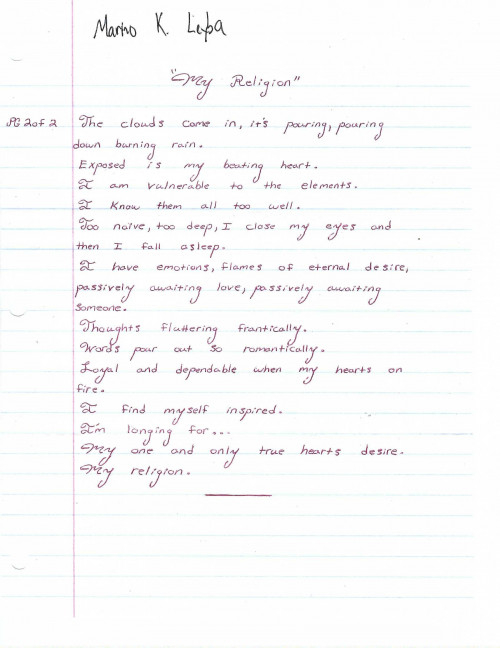 Marino K. Leyba
"My Religion"
PG 2 of 2 The clouds come in, it's pouring, pouring
down burning rain.
Exposed is my beating heart.
I am vulnerable to the elements.
I know them all too well.
Too naïve, too deep, I close my eyes and
then I fall asleep.
I have emotions, flames of eternal desire,
passively awaiting love, passively awaiting
someone.
Thoughts fluttering frantically.
Words pour out so romantically.
Loyal and dependable when my hearts on
fire.
I find myself inspired.
I'm longing for...
My one and only true hearts desire.
My religion.